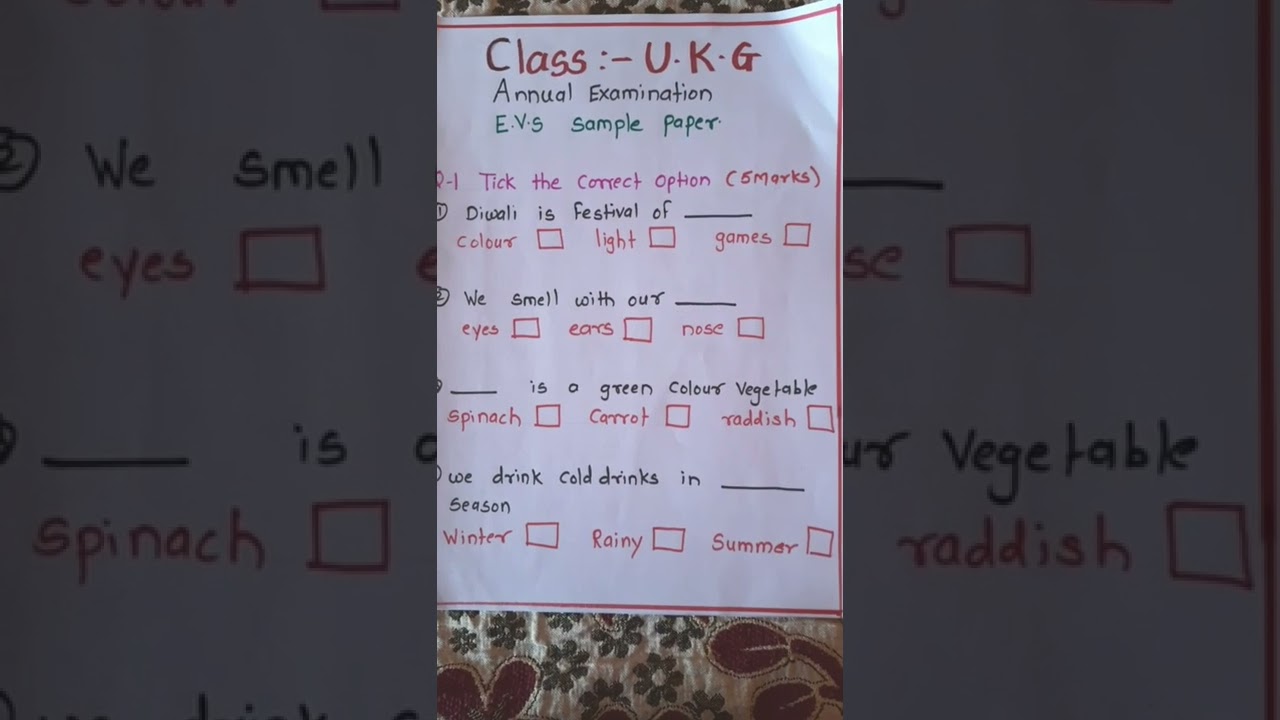 Class :- U.K.G
Annual Examination
E.V.S sample paper.
Q-1 Tick the correct option (5marks)
① Diwali is festival of ____
colour light games
② We smell with our ____
eyes ears nose
____ is a green colour vegetable
spinach carrot raddish
we drink cold drinks in ____
season
Winter Rainy Summer